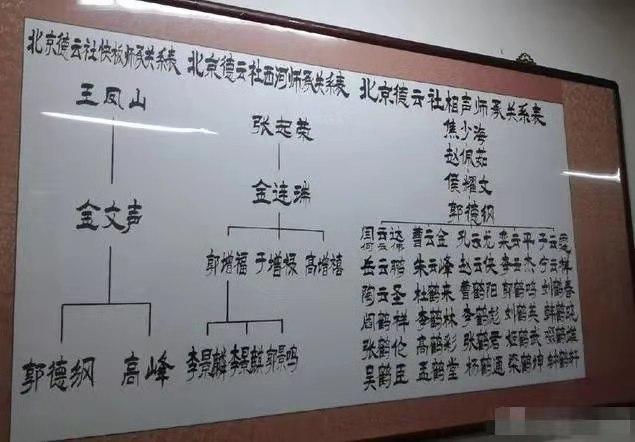 北京德云社快板师承关系表
王凤山
金文声
郭德纲 高峰
北京德云社西河师承关系表
张志荣
金连瑞
郭增福 于增禄 高增禧
李景麒 李景麟 郭景鸣
北京德云社相声师承关系表
焦少海
赵佩茹
侯耀文
郭德纲
曹云金 孔云龙 栾云平 于云霆
岳云鹏 朱云峰 赵云侠 李云杰 宁云祥
陶云圣 杜鹤来 曹鹤阳 郭鹤鸣 刘鹤春
阎鹤祥 李鹤林 李鹤彪 刘鹤英
张鹤伦 高鹤彩 张鹤君
吴鹤臣 孟鹤堂 杨鹤通 梁鹤坤